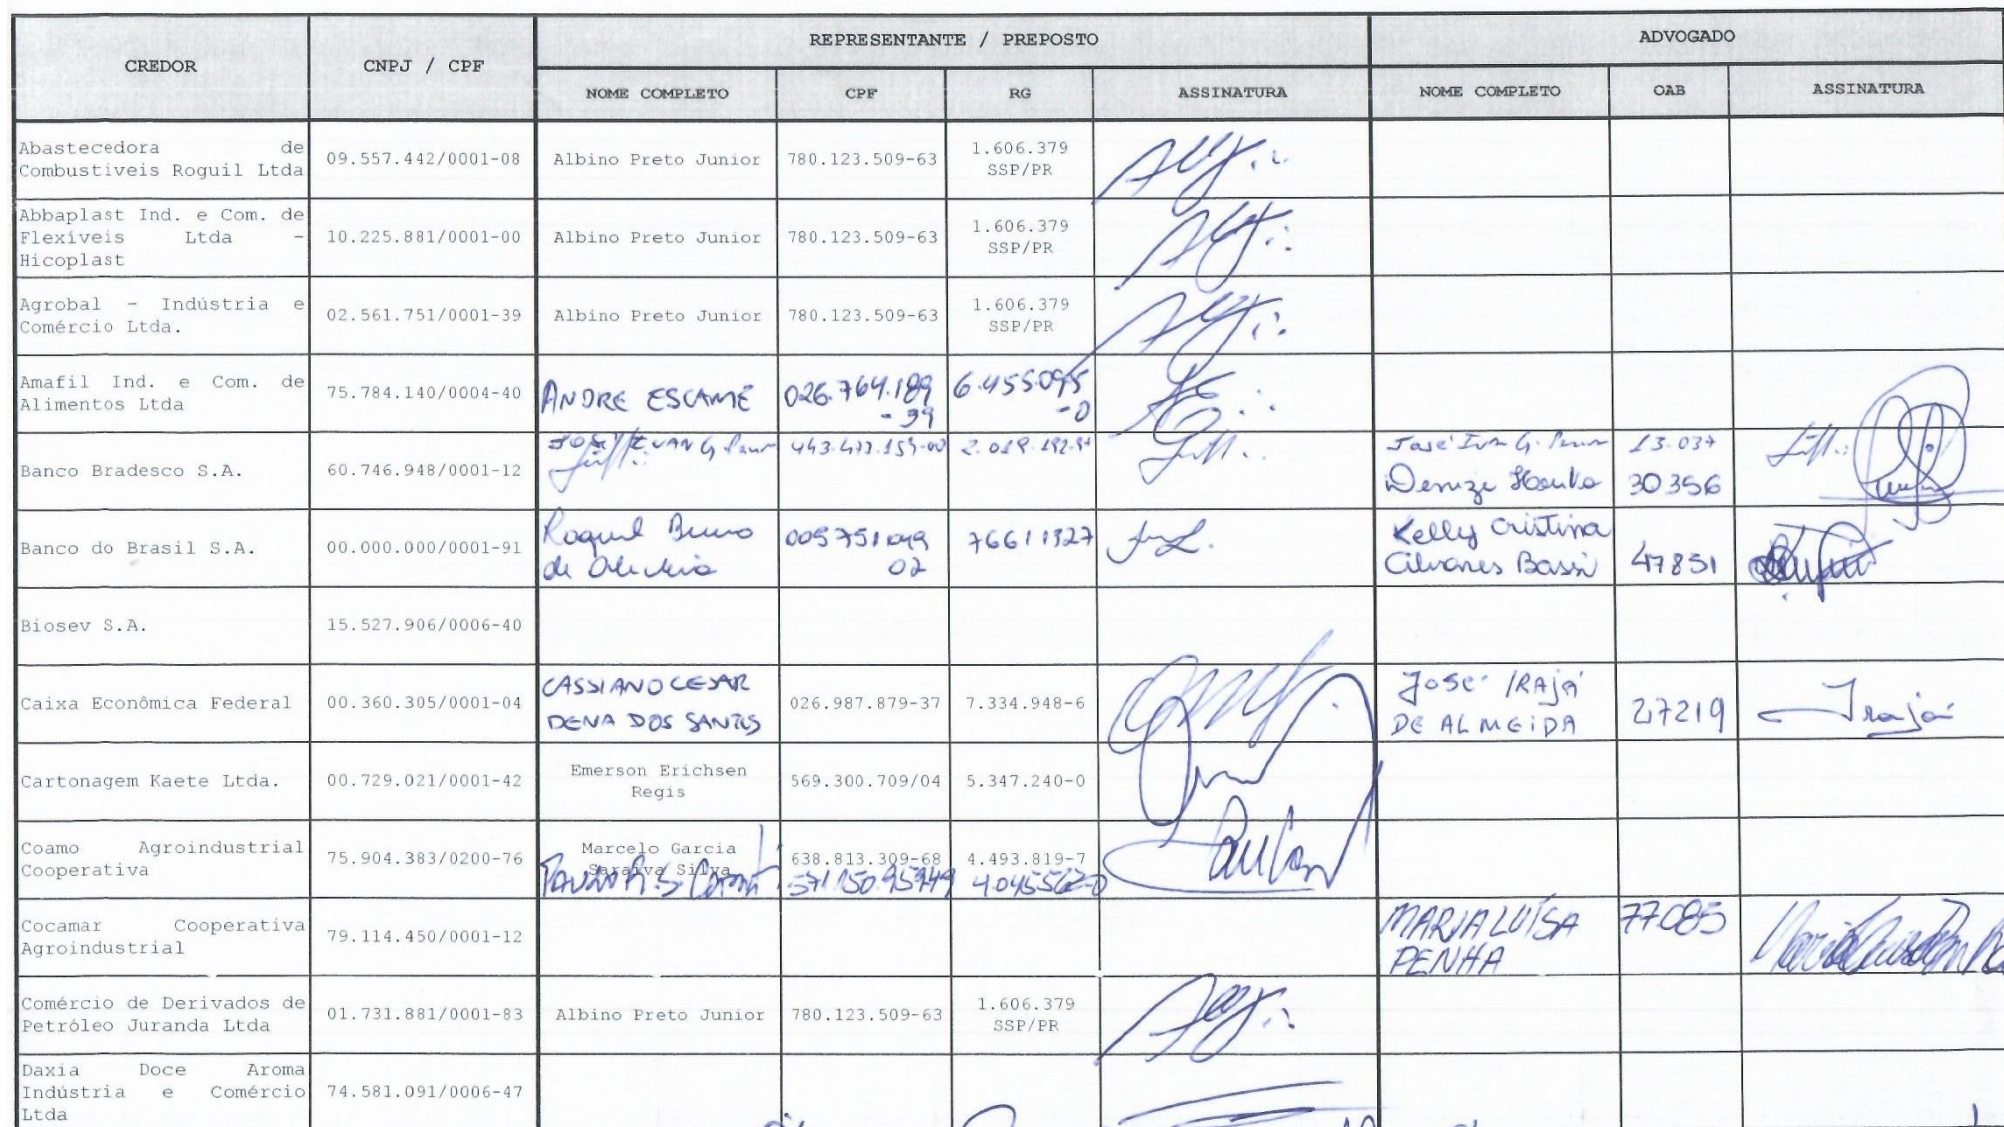 REPRESENTANTE / PREPOSTO
ADVOGADO
CREDOR
CNPJ / CPF
NOME COMPLETO
CPF
RG
ASSINATURA
NOME COMPLETO
OAB
ASSINATURA
Abastecedora de
Combustíveis Roguil Ltda
09.557.442/0001-08
Albino Preto Junior
780.123.509-63
1.606.379
SSP/PR
Abbaplast Ind. e Com. de
Flexíveis Ltda -
Hicoplast
10.225.881/0001-00
Albino Preto Junior
780.123.509-63
1.606.379
SSP/PR
Agrobal - Indústria e
Comércio Ltda.
02.561.751/0001-39
Albino Preto Junior
780.123.509-63
1.606.379
SSP/PR
Amafil Ind. e Com. de
Alimentos Ltda
75.784.140/0004-40
ANDRE ESCAME
026.764.189
-39
6.455.095
-0
Banco Bradesco S.A.
60.746.948/0001-12
José Ivan G.
13.037
Denize
30356
Banco do Brasil S.A.
00.000.000/0001-91
Raquel
de Oliveira
02
76611327
Kelly Cristina
Bassi
47851
Biosev S.A.
15.527.906/0006-40
Caixa Econômica Federal
00.360.305/0001-04
CASSIANO CESAR
DENA DOS SANTOS
026.987.879-37
7.334.948-6
José IRAJá
DE ALMEIDA
27219
Irajá
Cartonagem Kaete Ltda.
00.729.021/0001-42
Emerson Erichsen
Regis
569.300.709/04
5.347.240-0
Coamo Agroindustrial
Cooperativa
75.904.383/0200-76
Marcelo Garcia
Saraiva Silva
638.813.309-68
4.493.819-7
4.045562-0
Cocamar Cooperativa
Agroindustrial
79.114.450/0001-12
MARIA LUÍSA
PENHA
77085
Comércio de Derivados de
Petróleo Juranda Ltda
01.731.881/0001-83
Albino Preto Junior
780.123.509-63
1.606.379
SSP/PR
Daxia Doce Aroma
Indústria e Comércio
Ltda
74.581.091/0006-47